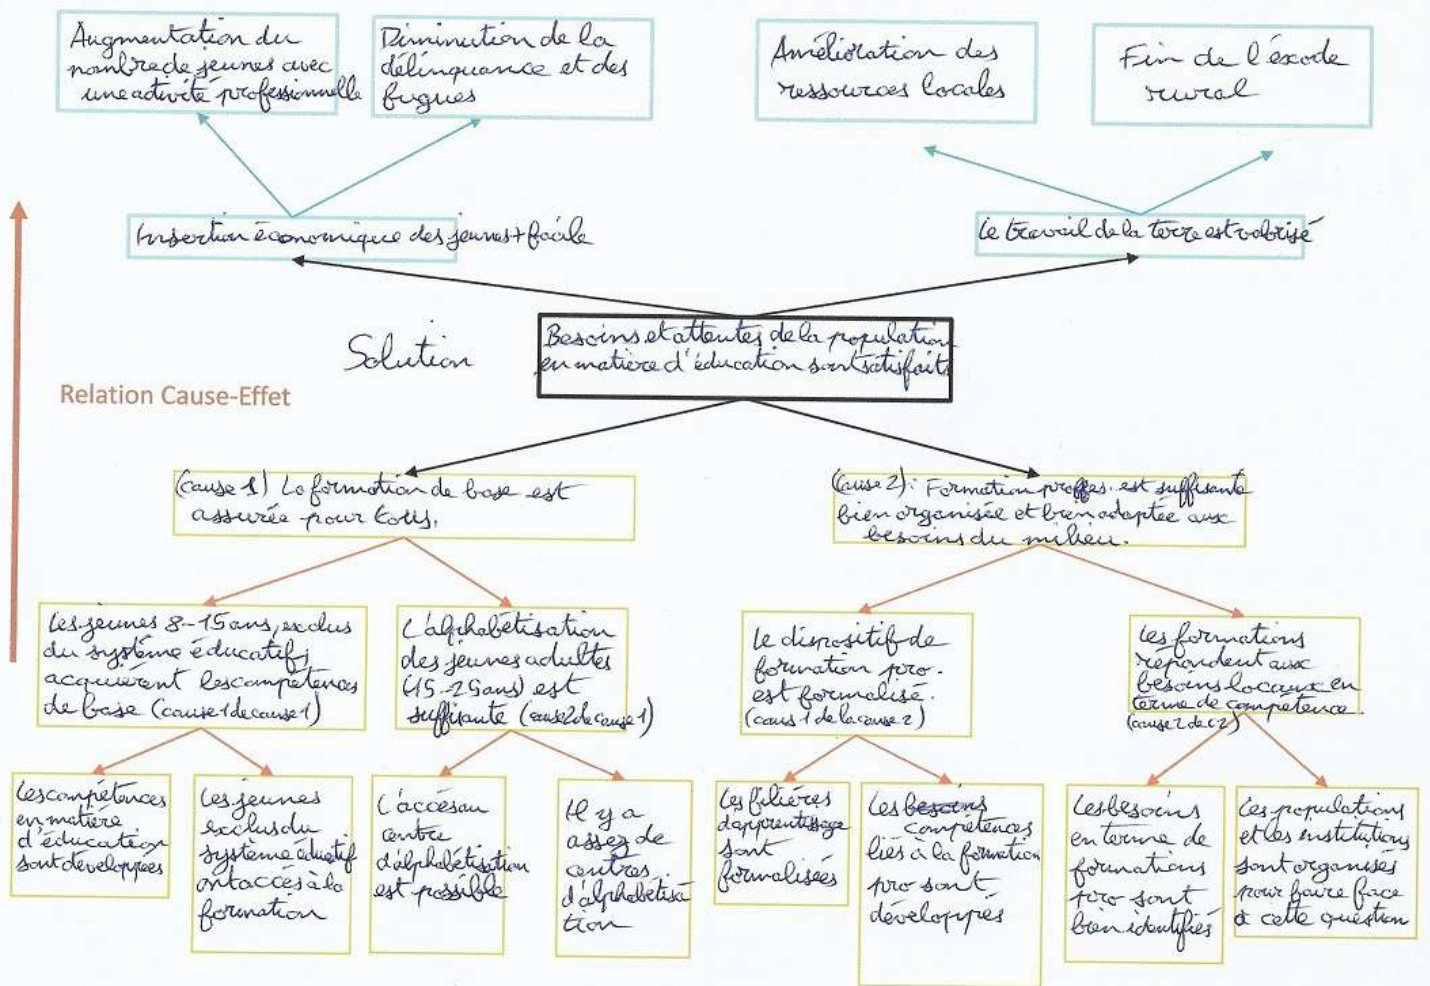 Augmentation du
nombre de jeunes avec
une activité professionnelle
Diminution de la
délinquance et des
fugues
Amélioration des
ressources locales
Fin de l'éxode
rural
Insertion économique des jeunes + facile
Le travail de la terre est valorisé
Solution
Besoins et attentes de la population
en matière d'éducation sont satisfaits
Relation Cause-Effet
(cause 1) La formation de base est
assurée pour tous.
(Cause 2): Formation profes. est suffisante
bien organisée et bien adaptée aux
besoins du milieu.
Les jeunes 8-15 ans, exclus
du système éducatif,
acquièrent les compétences
de base (cause 1 de cause 1)
L'alphabétisation
des jeunes adultes
(15-25 ans) est
suffisante (cause 2 de cause 1)
Le dispositif de
formation pro.
est formalisé.
(caus 1 de la cause 2)
Les formations
répondent aux
besoins locaux en
terme de compétence.
(cause 2 de c2)
Les compétences
en matière
d'éducation
sont développées
Les jeunes
exclus du
système éducatif
ont accès à la
formation
L'accès au
centre
d'alphabétisation
est possible
Il y a
assez de
centres
d'alphabétisa
tion
Les filières
d'apprentissage
sont
formalisées
Les besoins
compétences
liés à la formation
pro sont
développés
Les besoins
en terme de
formations
pro sont
bien identifiés
Les populations
et les institutions
sont organisés
pour faire face
à cette question